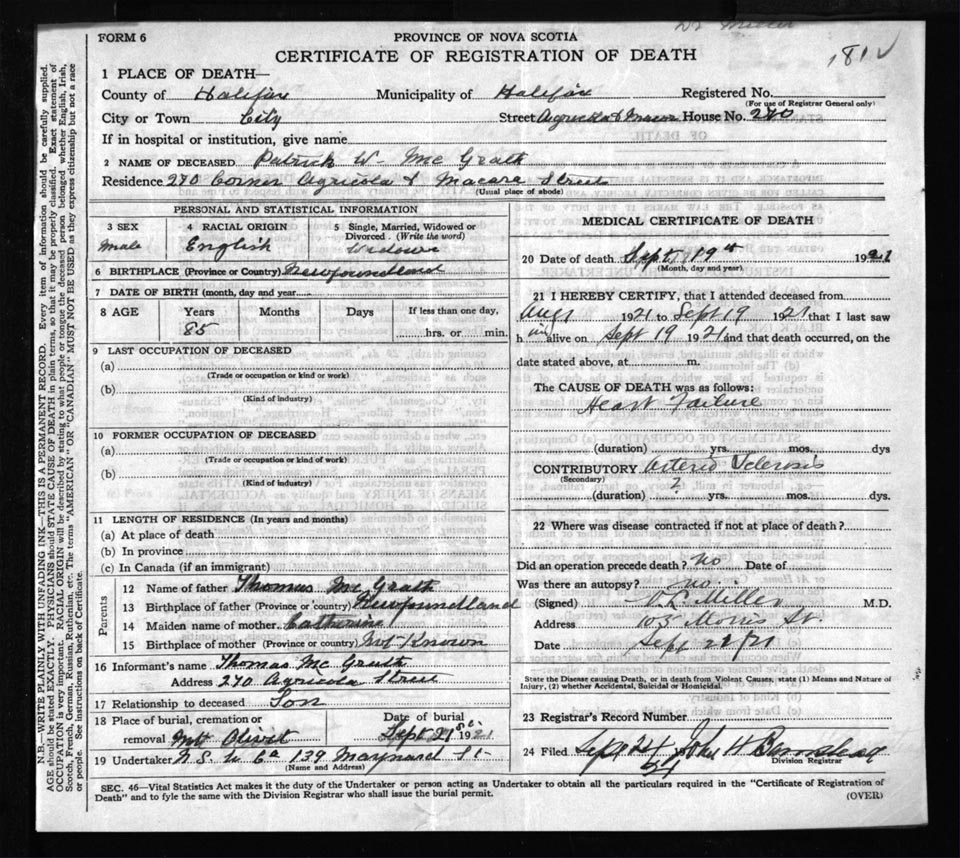 Dr Miller
181
FORM 6
PROVINCE OF NOVA SCOTIA
CERTIFICATE OF REGISTRATION OF DEATH
1 PLACE OF DEATH—
County of Halifax Municipality of Halifax Registered No.
(For use of Registrar General only)
City or Town City Street Agricola & House No. 270
If in hospital or institution, give name
2 NAME OF DECEASED Patrick W. Mc Grath
Residence 270 Corner Agricola & Macara Streets
(Usual place of abode)
PERSONAL AND STATISTICAL INFORMATION
3 SEX 4 RACIAL ORIGIN 5 Single, Married, Widowed or Divorced. (Write the word)
Male English Widower
6 BIRTHPLACE (Province or Country) Newfoundland
7 DATE OF BIRTH (month, day and year)
8 AGE Years Months Days If less than one day,
85 hrs. or min.
9 LAST OCCUPATION OF DECEASED
(a)
(Trade or occupation or kind or work)
(b)
(Kind of industry)
10 FORMER OCCUPATION OF DECEASED
(a)
(Trade or occupation or kind of work)
(b)
(Kind of industry)
11 LENGTH OF RESIDENCE (In years and months)
(a) At place of death
(b) In province
(c) In Canada (if an immigrant)
Parents
12 Name of father Thomas Mc Grath
13 Birthplace of father (Province or country) Newfoundland
14 Maiden name of mother Catherine
15 Birthplace of mother (Province or country) Not Known
16 Informant's name Thomas Mc Grath
Address 270 Agricola Street
17 Relationship to deceased Son
18 Place of burial, cremation or Date of burial
removal Mt Olivet Sept 21st 1921
19 Undertaker N. S. U Co 139 Maynard St.
(Name and Address)
MEDICAL CERTIFICATE OF DEATH
20 Date of death Sept 19th 1921
(Month, day and year)
21 I HEREBY CERTIFY, that I attended deceased from
Aug 1921 to Sept 19 1921 that I last saw
him alive on Sept 19 1921 and that death occurred, on the
date stated above, at m.
The CAUSE OF DEATH was as follows:
Heart Failure
(duration) yrs. mos. dys
CONTRIBUTORY Arterio Sclerosis
(Secondary)
(duration) ? yrs. mos. dys.
22 Where was disease contracted if not at place of death?
Did an operation precede death? No Date of
Was there an autopsy? No
(Signed) Miller M.D.
Address 105 Morris St.
Date Sept 21/21
State the Disease causing Death, or in death from Violent Causes, state (1) Means and Nature of
Injury, (2) whether Accidental, Suicidal or Homicidal.
23 Registrar's Record Number
24 Filed Sept 21 19 21 John H Barnstead
Division Registrar
SEC. 46—Vital Statistics Act makes it the duty of the Undertaker or person acting as Undertaker to obtain all the particulars required in the "Certificate of Registration of
Death" and to fyle the same with the Division Registrar who shall issue the burial permit.
(OVER)
N.B.—WRITE PLAINLY WITH UNFADING INK—THIS IS A PERMANENT RECORD. Every item of information should be carefully supplied.
AGE should be stated EXACTLY. PHYSICIANS should STATE CAUSE OF DEATH in plain terms, so that it may be properly classified. Exact statement of
OCCUPATION is very important. RACIAL ORIGIN will be described by stating to what people or tongue the deceased person belonged whether English, Irish,
Scotch, French, German, Russian, Ruthenian, etc. The terms "AMERICAN" OR "CANADIAN" MUST NOT BE USED as they express citizenship but not a race
or people. See instructions on back of Certificate.